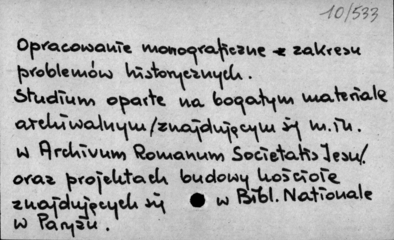 10/533
Opracowanie monograficzne z zakresu
problemów historycznych.
Studium oparte na bogatym materiale
archiwalnym/znajdującym się m.in.
w Archivum Romanum Societatis Jesu/
oraz projektach budowy kościoła
znajdujących się w Bibl. Nationale
w Paryżu.